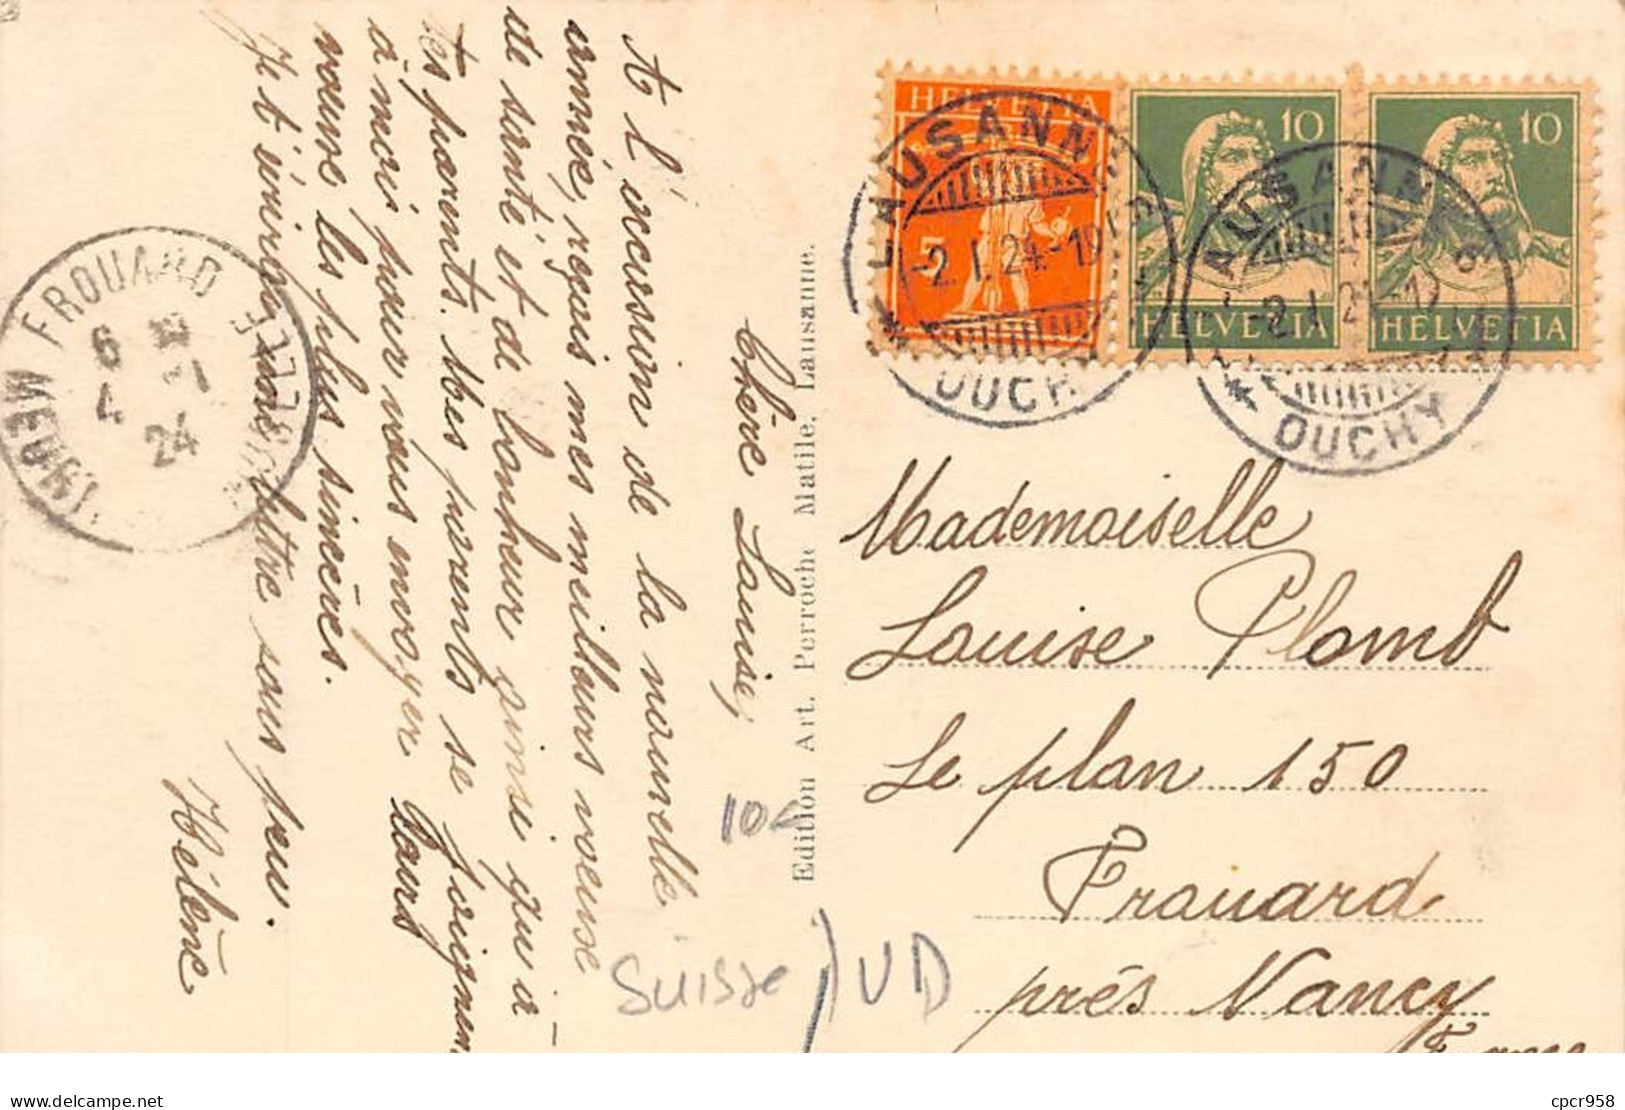 Chère Louise,
A l'occasion de la nouvelle
année, reçois mes meilleurs voeuse
de santé et de bonheur ainsi qu'à
tes parents. Mes parents se joignent
à moi pour vous envoyer leurs
voeuse les plus sincères.
Je t'enverrai une lettre sous peu.
Hélène
FROUARD
MEURTHE
6
4
24
Edition Art. Perroche Matile, Lausanne.
10€
Suisse / VD
HELVETIA
5
10
HELVETIA
10
HELVETIA
LAUSANNE
-2.I.24-10
OUCHY
LAUSANNE
-2.I.24-
OUCHY
Mademoiselle
Louise Plomb
Le plan 150
Frouard
près Nancy
delcampe.net
cpcr958